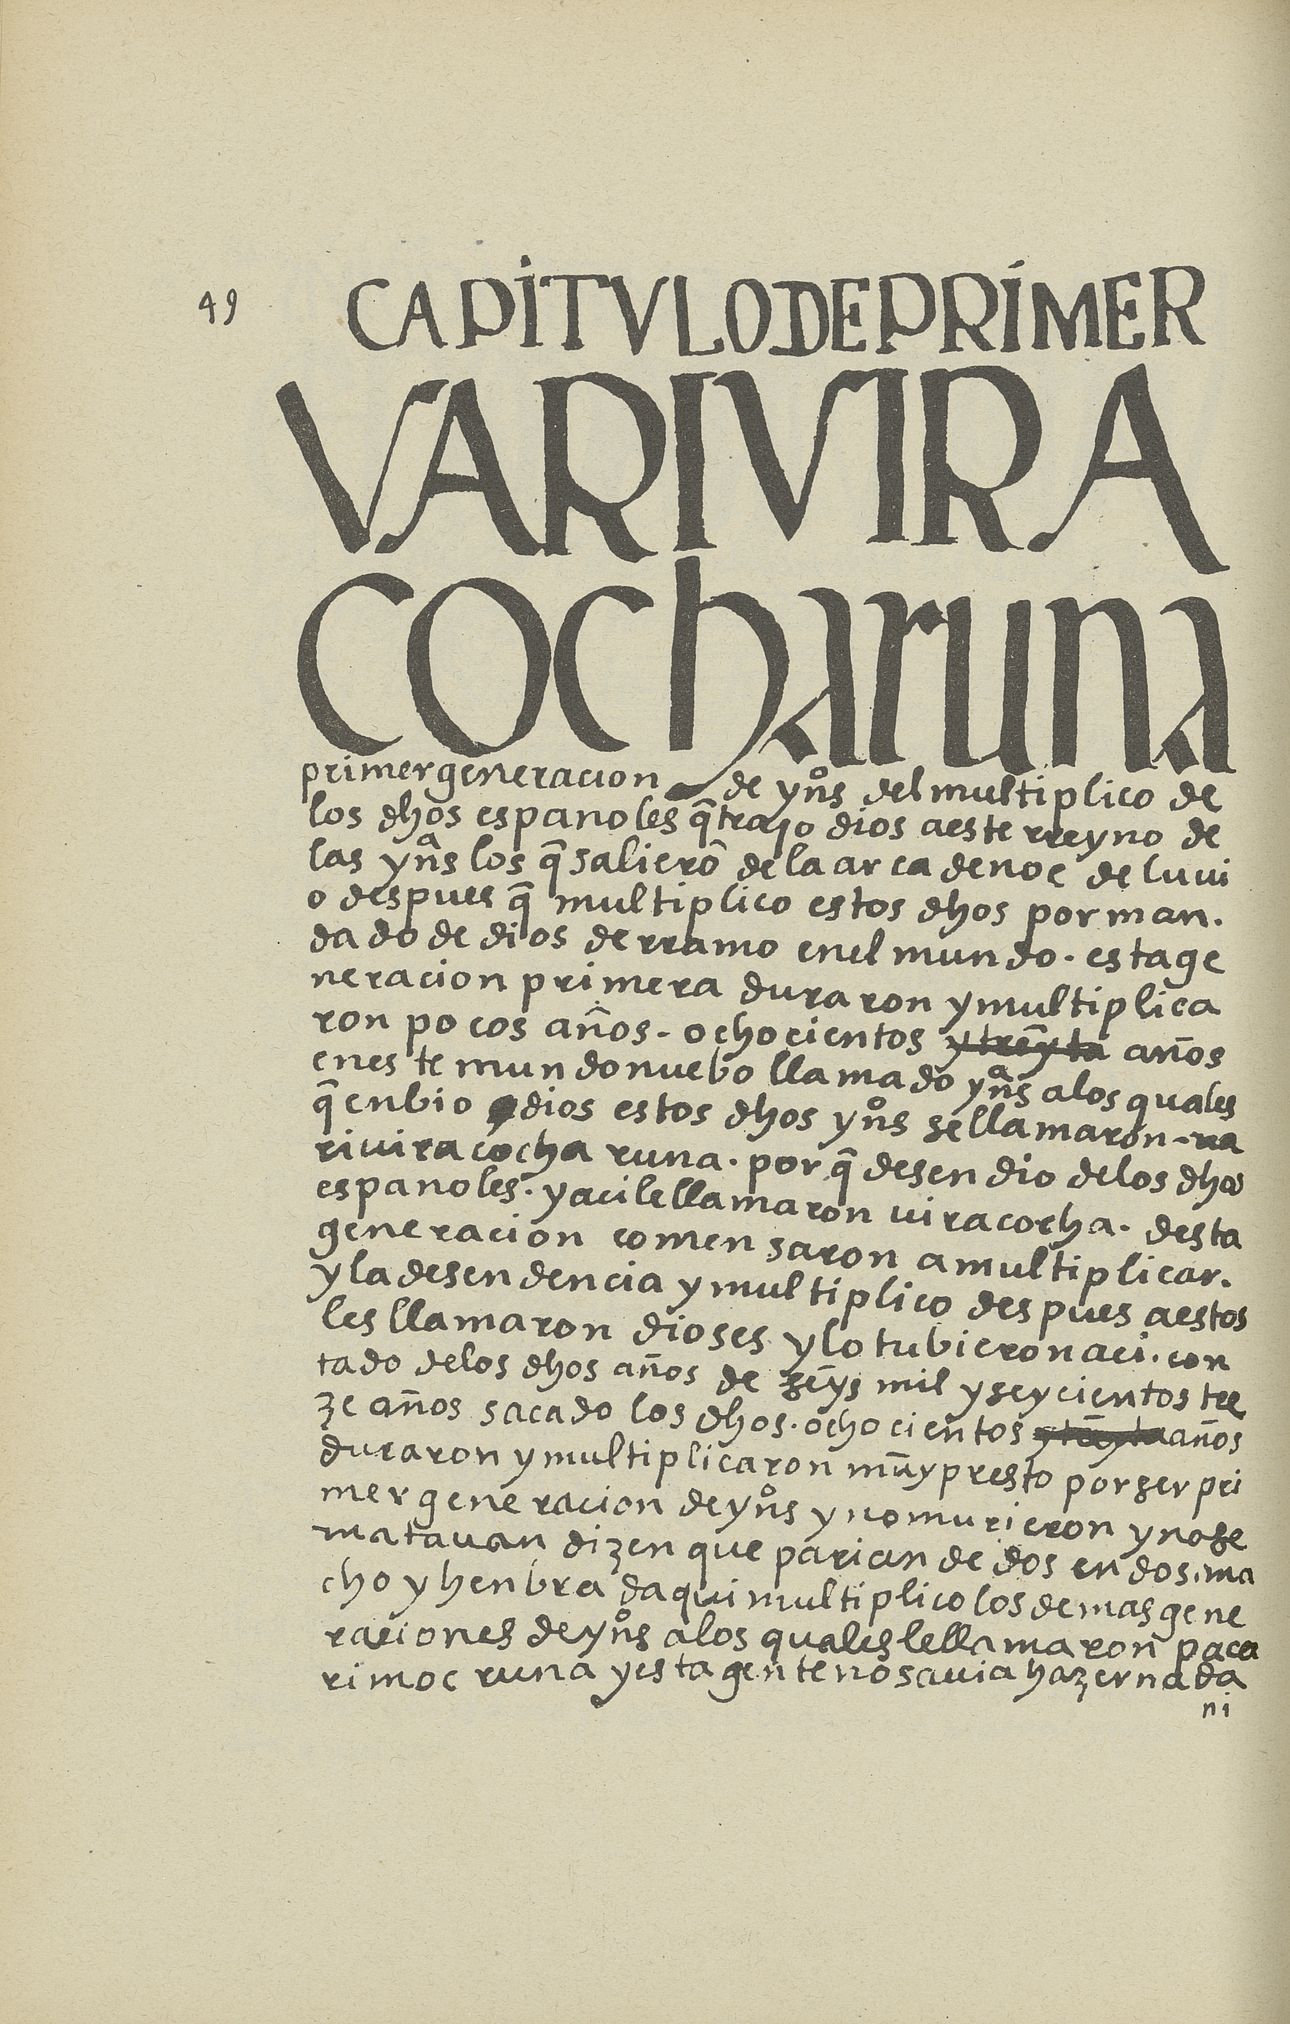 49
CAPITVLO DE PRIMER
VARIVIRA
COcharuna
primer generacion de yn̊s del multiplico de
los dhos espanoles q̃ trajo dios a este rreyno de
las ynas los q̃ salierõ de la arca de noe deluui
o despues q̃ multiplico estos dhos por man.
dado de dios derramo en el mundo. esta ge
neracion primera duraron y multiplica
ron pocos años. ochocientos y treynta años
en este mundo nuebo llamado ynas a los quales
q̃ enbio dios estos dhos ynos se llamaron ua
riuiracocha runa. por q̃ desendio de los dhos
espanoles. y aci le llamaron uiracocha. desta
generacion comensaron a multiplicar.
y la desendencia y multiplico despues a estos
les llamaron dioses y lo tubieron aci. con
tado de los dhos años de seys mil y seycientos tre
ze años sacado los dhos. ochocientos y treynta años
duraron y multiplicaron muy presto por ser pri
mer generacion de ynos y no murieron y no se
matauan dizen que parian de dos en dos. ma
cho y henbra daqui multiplico los demas gene
raciones de ynos a los quales le llamaron paca
rimoc runa y esta gente no sauia hazer nada
ni